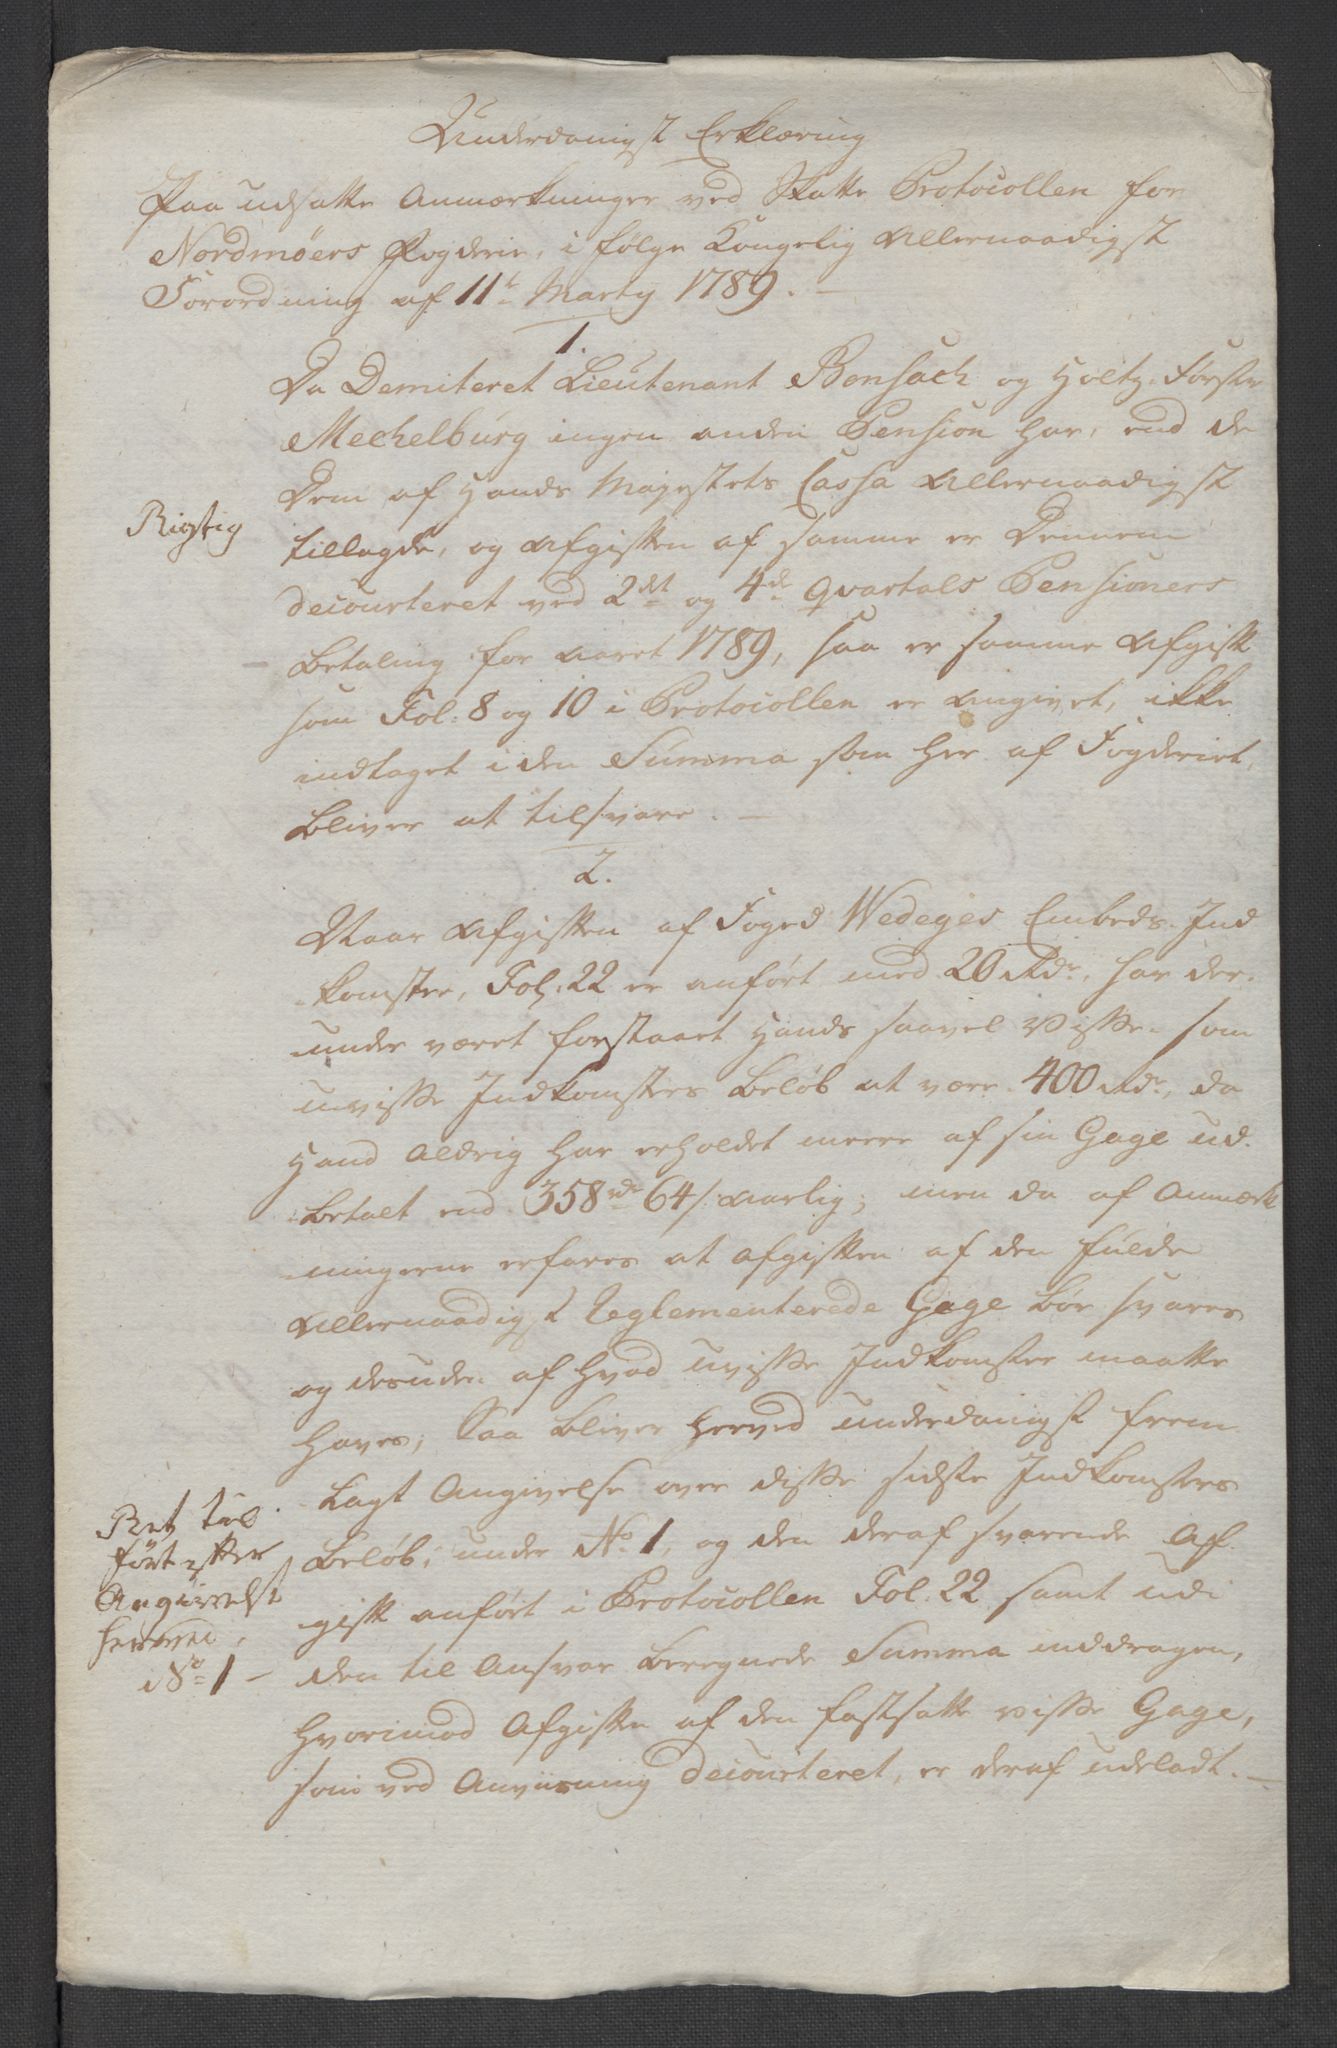 Underdanigst Erklæring
Paa udsatte Anmærkninger ved Skatte Protocollen for
Nordmøers Fogderie, i følge Kongelig Allernaadigst
Forordning af 11te Martij 1789. –
1.
Da Demiteret Lieutenant Bonsach og Holtz-Førster
Mechelburg ingen anden Pension har, end de
Dem af Hands Majestets Cassa Allernaadigst
Rigtig
tillagde, og Afgiften af samme er Dennem
decourteret ved 2det og 4de Qvartals Pensioners
Betaling for Aaret 1789, saa er samme Afgift
som Fol: 8 og 10 i Protocollen er Angivet, ikke
indtaget i den Summa som her af Fogderiet,
bliver at tilsvare. –
2.
Naar Afgiften af Foged Wedeges Embeds-Ind
komster, Fol: 22 er anført med 20 Rdr, har der-
under været forstaaet Hands saavel visse- som
uvisse Indkomsters Beløb at være 400 Rdr, da
Hand Aldrig har erholdet meere af sin Gage ud-
betalt end 358 rdr 64 s: Aarlig; men da af Anmærk
ningerne erfares at Afgiften af den fulde
Allernaadigst Reglementerede Gage bør svares
og desuden af hvad uvisse Indkomster maatte
haves; Saa bliver herved underdanigst frem
lagt Angivelse over disse sidste Indkomsters
Beløb, under No 1, og den deraf svarende Af
Ret til
ført efter
Angivelse
herved,
No 1 –
gift anført i Protocollen Fol: 22 samt udi
den til Ansvar beregnede Summa inddragen,
hvorimod Afgiften af den fastsatte visse Gage,
som ved Anviisning decourteret, er deraf udeladt. –